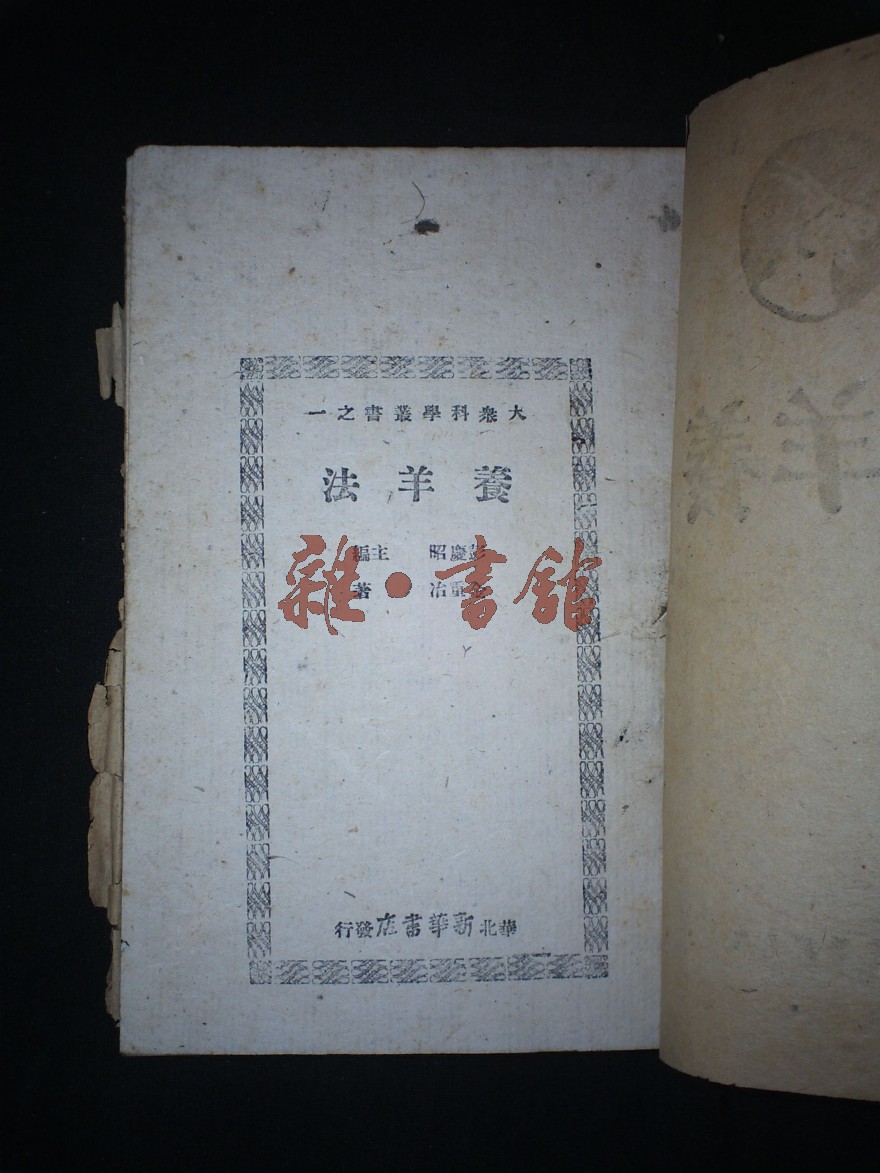 大衆科學叢書之一
養羊法
慶昭 主編
重冶 著
雜·書館
華北新華書店發行
養羊